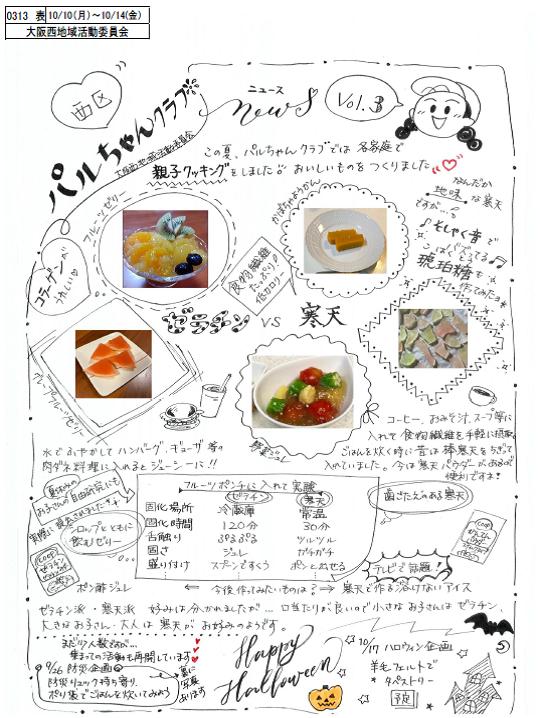 0313 表 10/10(月)～10/14(金)
大阪西地域活動委員会
西区
パルちゃんクラブ
大阪西地域活動委員会
ニュース
news
Vol.3
この夏、パルちゃんクラブでは 各家庭で
親子クッキングをしました♪ おいしいものをつくりました
フルーツゼリー
かぼちゃようかん
なんだか
地味な寒天
ですが…
♪そしゃく音で
こっぱくバズってる
琥珀糖も
作ってみた
コラーゲンが
うれしい
食物繊維
たっぷり♪
低カロリー
ゼラチン VS 寒天
グレープフルーツゼリー
野菜ジュレ
水でふやかしてハンバーグ、ギョーザ 等の
肉ダネ料理に入れるとジューシーに!!
コーヒー、おみそ汁、スープ等に
入れて 食物繊維を手軽に摂取
ごはんを炊く時に昔は棒寒天をちぎって
入れていました。今は寒天パウダーがあるので
便利です
夏休みの
お子さんの自由研究にも
実際に提出されました
シロップとともに
飲むゼリー
フルーツポンチに入れて実験
ゼラチン 寒天
固化場所 冷蔵庫 常温
固化時間 120分 30分
舌触り ぷるぷる ツルツル
固さ ジュレ ガチガチ
盛り付け スプーンですくう ポンと出せる
歯ごたえのある寒天
テレビで話題!
ポン酢ジュレ ⇐ 今後作ってみたいものは? ⇒ 寒天で作る溶けないアイス
ゼラチン派・寒天派 好みは分かれましたが… 口当たりが良いので小さなお子さんはゼラチン、
大きなお子さん・大人は 寒天が お好みのようです。
まだ少人数ですが…
集まっての活動も再開しています
9/26 防災企画
防災リュック持ち寄り、
ポリ袋でごはんを炊いてみよう
裏に
写真
あります
Happy
Halloween
10/17 ハロウィン企画
羊毛フェルトで
タペストリー
予定